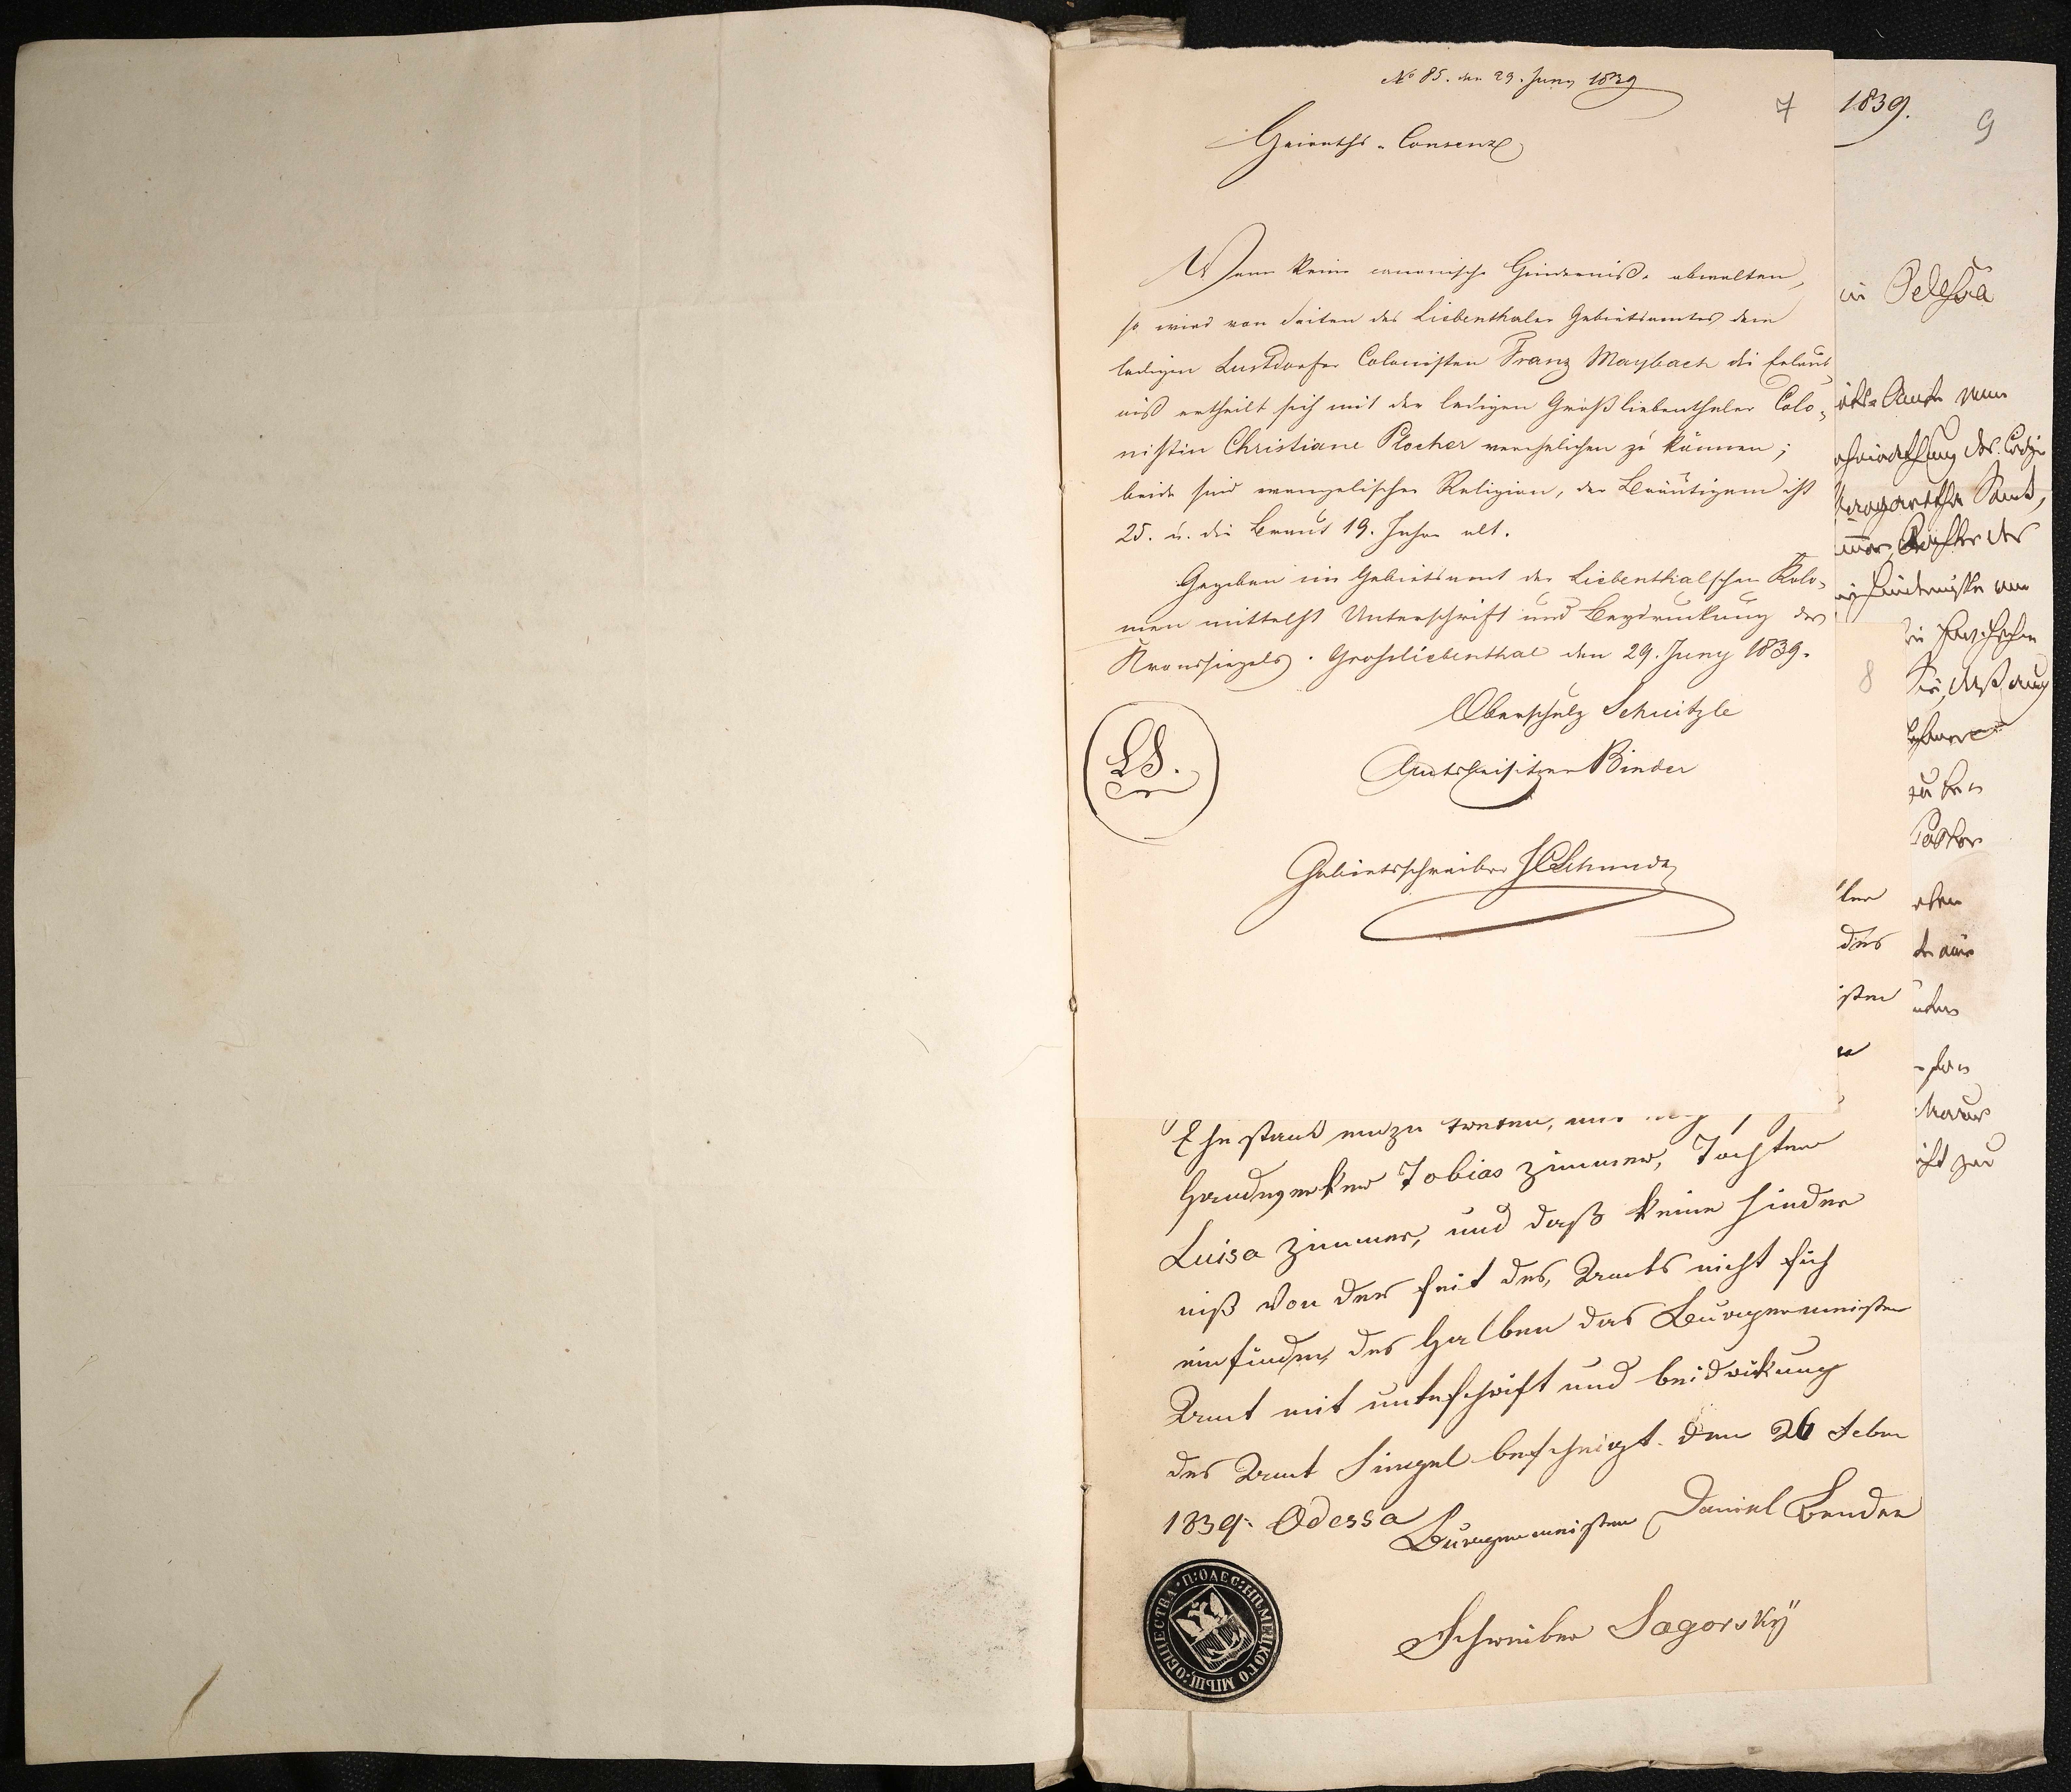 No 85. den 29. Juny 1839
7
Heiraths-Consens
Wenn keine canonische Hinderniße obwalten,
so wird von Seiten des Liebenthaler Gebietsamtes dem
ledigen Lustdorfer Colonisten Franz Maybach die Erlaub
niß ertheilt sich mit der ledigen Großliebenthaler Colo-
nistin Christiane Plocher verehelichen zu können;
beide sind evangelischer Religion, der Bräutigam ist
25. u. die Braut 19. Jahre alt.
Gegeben im Gebietsamt der Liebenthalschen Kolo-
nien mittelst Unterschrift und Beydruckung des
Kronssiegels. Grosliebenthal den 29. Juny 1839.
Oberschulz Schnitzle
LS.
Amtsbeisitzer Binder
Gebietsschreiber
Ehestand einzu treten, mit
Handwerker Tobias Zimmer, Tochter
Luisa Zimmer, und daß keine Hinder
niß von der seit des Amts nicht sich
einfinden, des Halben das Burgermeister
Amt mit unterschrift und beidrükung
des Amt Siegel bescheigt. den 26 Febr
1839. Odessa
Burgermeister Daniel Bender
Schreiber Sagorsky
П: ОДЕС: НѢМЕЦКОГО МѢЩ: ОБЩЕСТВА
1839.
9
in Odessa
8
Pastor